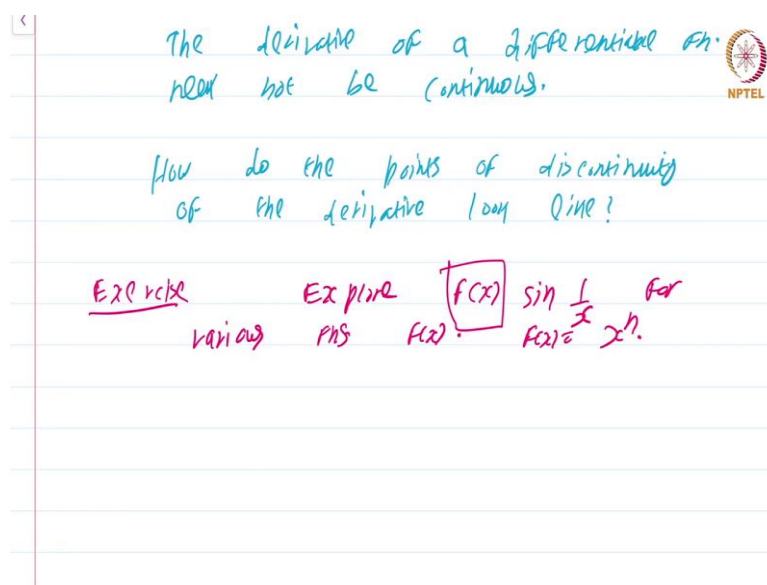 The derivative of a differentiable fn.
need not be continuous.
NPTEL
How do the points of discontinuity
of the derivative look like?
Exercise Explore f(x) sin 1/x for
various fns f(x). f(x) = x^n.